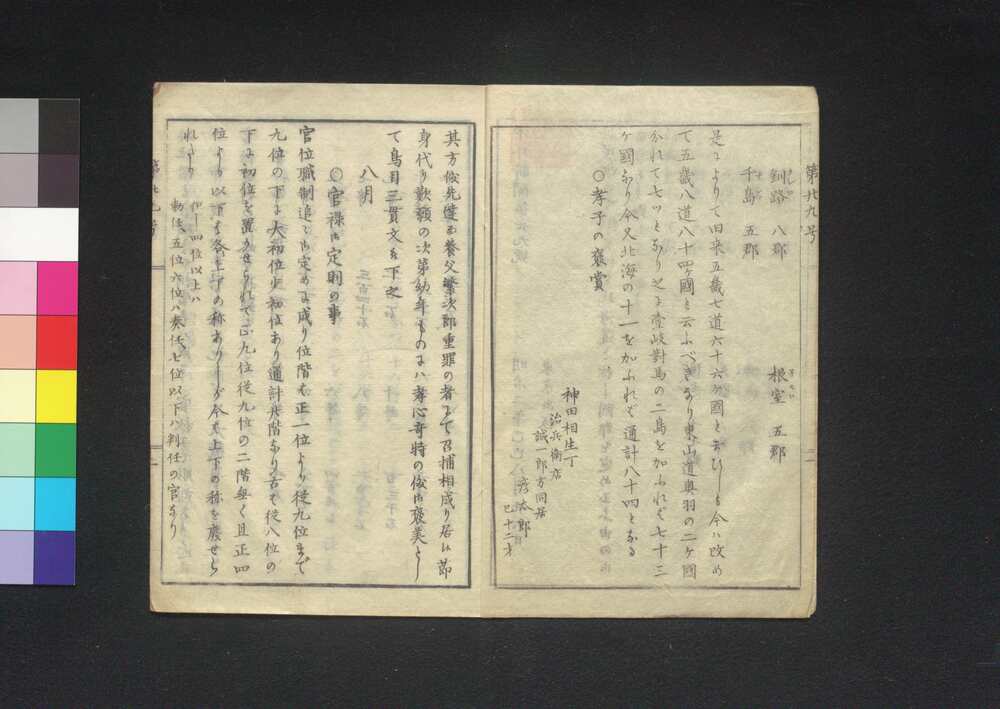 第廿九号
釧路 八郡
根室 五郡
千島 五郡
是によりて旧来五畿七道六十六ヶ國と云ひしも今ハ改め
て五畿八道八十四ヶ國と云ふべきなり東山道奥羽の二ヶ國
分れて七ツとなり之に壹岐對馬の二島を加ふれば七十三
ヶ國なり今又北海の十一を加ふれば通計八十四となる
○孝子の褒賞
神田相生丁
治兵衛店
誠一郎方同居
彦太郎
巳十二才
其方儀先達而養父繁次郎重罪の者にて召捕相成り居候節
身代り歎願の次第幼年ものにハ孝心奇特の儀ニ付褒美とし
て鳥目三貫文を下之
八月
○官禄御定則の事
官位職制追々御定めに成り位階は正一位より従九位まで
九位の下に大初位少初位あり通計廿階なり古は従八位の
下に初位を置かせられて正九位従九位の二階無く且正四
位より以下は各上下の称ありしが今は上下の称を廃せら
れたり
但し四位以上ハ
勅任五位六位ハ奏任七位以下ハ判任の官なり
第廿九号
二